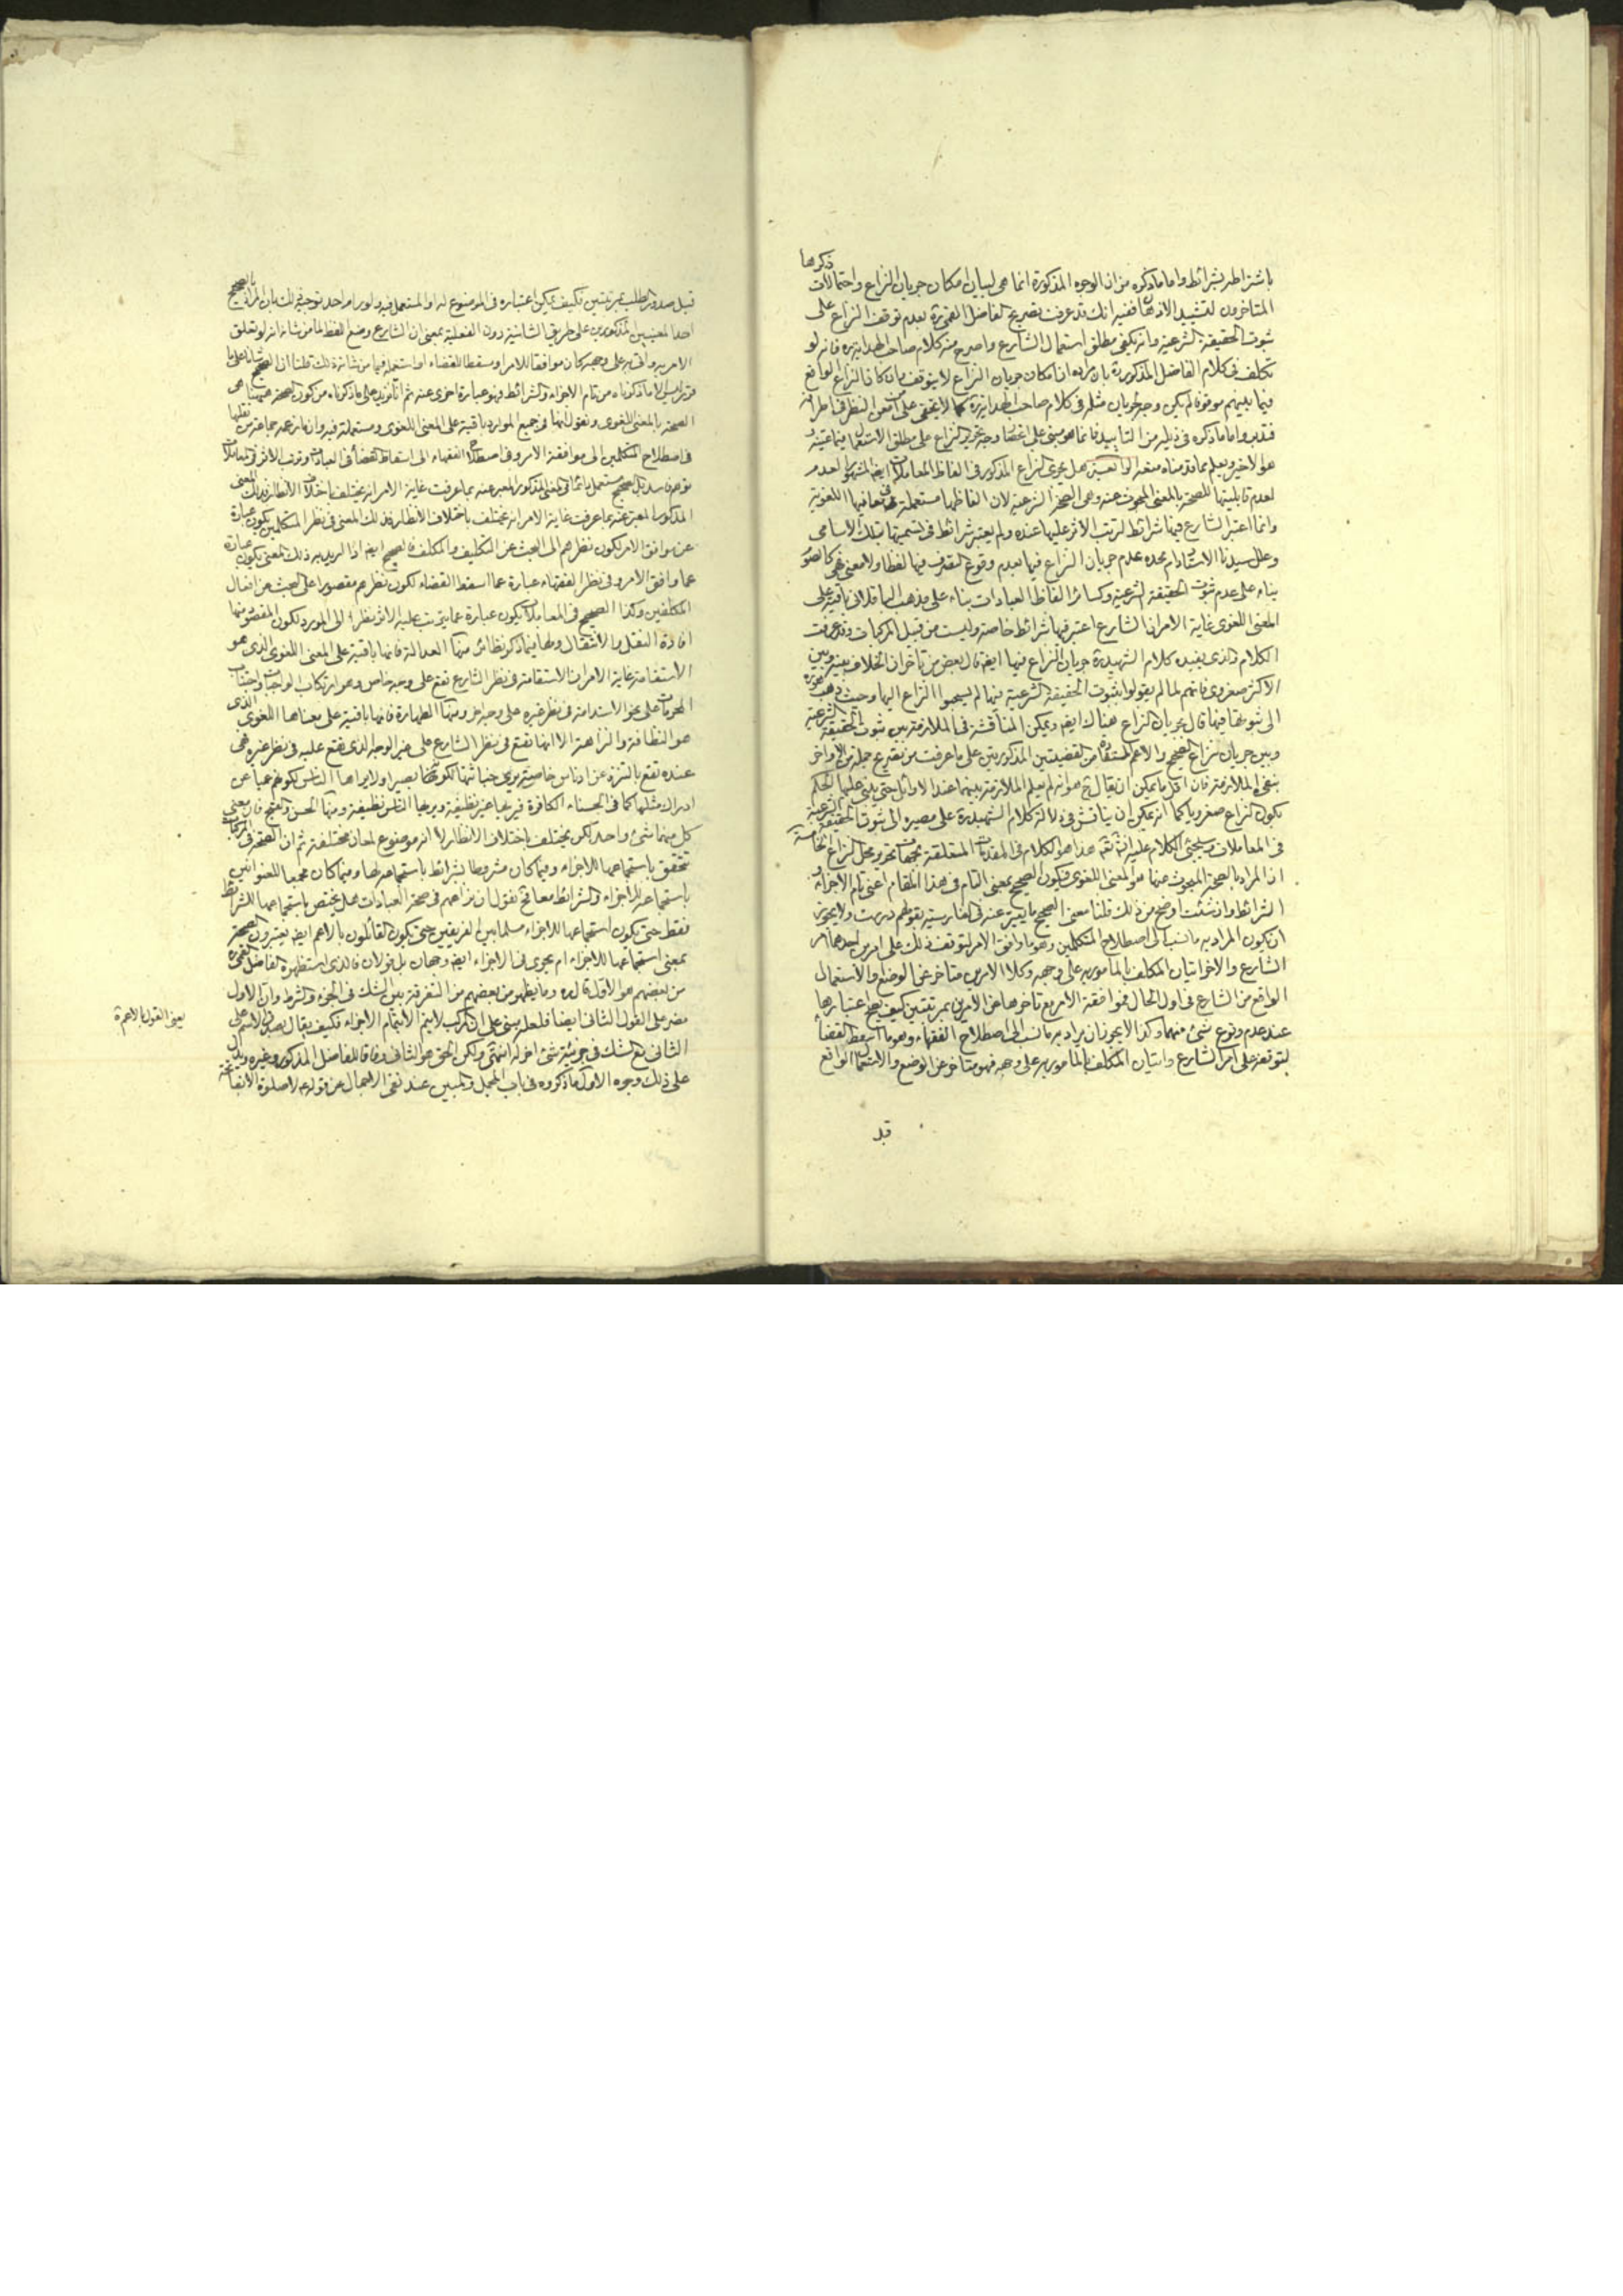 ذكرها
باشتراطه بشرائط واما ما ذكره من ان الوجوه المذكورة انما هى لبيان امكان جريان النزاع واحتمالات
المتاخرون لتشييد الاذهان ففيه انك قد عرفت تصريح الفاضل القمى ره بعدم توقف النزاع على
ثبوت الحقيقة الشرعية وانه يكفى مطلق استعمال الشارع واصرح منه كلام صاحب الهداية ره فانه لو
تكلف فى كلام الفاضل المذكور ره بان مراده ان امكان جريان النزاع لا يتوقف وان كان النزاع الواقع
فيما بينهم موقوفا لم يكن وجه لجريان مثله فى كلام صاحب الهداية ره كما لا يخفى على من امعن النظر فى اطرافه
فتدبر واما ما ذكره فى ذيله من التاييد فانما هو مبنى على انحصار وجه تحرير النزاع على مطلق الاستعمال فيما عينه
هو الاخير ويعلم مما قدمناه سقوطه هل يجرى النزاع المذكور فى الفاظ المعاملات ايضا المشهور العدم
لعدم قابليتها للصحة بالمعنى المبحوث عنه وهى الصحة الشرعية لان الفاظها مستعملة فى معانيها اللغوية
وانما اعتبر الشارع فيها شرائط لترتب الاثر عليها عنده ولم يعتبر شرائط فى تسميتها بتلك الاسامى
وعلل سيدنا الاستاد دام مجده عدم جريان النزاع فيها بعدم وقوع التصرف فيها لفظا ولا معنى فهى كالصوم
بناء على عدم ثبوت الحقيقة الشرعية وكسائر الفاظ العبادات بناء على مذهب الباقلانى باقية على
المعنى اللغوى غاية الامر ان الشارع اعتبر فيها شرائط خاصة وليست من قبيل المركبات وقد عرفت
الكلام والذى يفيده كلام الشهيد ره جريان النزاع فيها ايضا قال بعض من تاخر ان الخلاف بينه وبين
الاكثر صغروى فانهم لما لم يقولوا بثبوت الحقيقة الشرعية فيها لم يسحبوا النزاع اليها وحيث ذهب هو ره
الى ثبوتها فيها قال بجريان النزاع هناك ايضا ويمكن المناقشة فى الملازمة بين ثبوت الحقيقة الشرعية
وبين جريان نزاع الصحيح والاعم المستفادة من القضيتين المذكورتين على ما عرفت من تصريح جملة من الاواخر
بنفى الملازمة فان اقل ما يمكن ان يقال ح هو انه لم يعلم الملازمة بينهما عند الاوائل حتى يبنى عليها الحكم
بكون النزاع صغرويا كما انه يمكن ان يناقش فى دلالة كلام الشهيد ره على مصيره الى ثبوت الحقيقة الشرعية
فى المعاملات وسيجئ الكلام عليه انشاء الله هذا هو الكلام فى المقدمات المتعلقة بجهات تحرير محل النزاع الخامسة
ان المراد بالصحة المبحوث عنها هو المعنى اللغوى فيكون الصحيح بمعنى التام فى هذا المقام اعنى تام الاجزاء و
الشرائط وان شئت اوضح من ذلك قلنا معنى الصحيح ما يعبر عنه فى الفارسية بقولهم درست ولا يجوز
ان يكون المراد به ما نسب الى اصطلاح المتكلمين وهو ما وافق الامر لتوقف ذلك على امرين احدهما امر
الشارع والاخر اتيان المكلف بالمامور به على وجهه وكلا الامرين متاخر عن الوضع والاستعمال
الواقع من الشارع فى اول الحال فموافقة الامر مع تاخرها عن الامرين بمرتبتين كيف يصح اعتبارها
عند عدم وقوع شئ منهما وكذا لا يجوز ان يراد به ما نسب الى اصطلاح الفقهاء وهو ما اسقط القضاء
لتوقفه على امر الشارع واتيان المكلف بالمامور به على وجهه فهو متاخر عن الوضع والاستعمال الواقع
قبل
قبل صدور الطلب بمرتبتين فكيف يمكن اعتباره فى الموضوع له او المستعمل فيه ولو رام احد توجيه ذلك بان المراد بالصحيح
احد المعنيين المذكورين على طريق الشانية دون الفعلية بمعنى ان الشارع وضع اللفظ لما من شانه انه لو تعلق
الامر به واتى به على وجهه كان موافقا للامر ومسقطا للقضاء او استعمله فيما من شانه ذلك قلنا ان الصحيح
ليس الا ما ذكرناه من تام الاجزاء والشرائط وهو عبارة اخرى عنه ثم انا نزيد على ما ذكرناه من كون الصحة هيهنا هى
الصحة بالمعنى اللغوى ونقول انها فى جميع الموارد باقية على المعنى اللغوى ومستعملة فيه وان ما زعمه جماعة من نقلها
فى اصطلاح المتكلمين الى موافقة الامر وفى اصطلاح الفقهاء الى اسقاط القضاء فى العبادات وترتب الاثر فى المعاملات
توهم فاسد بل الصحيح مستعمل دائما فى المعنى المذكور المعبر عنه بما عرفت غاية الامر انه يختلف باختلاف الانظار فذلك المعنى
المذكور المعبر عنه بما عرفت غاية الامر انه يختلف باختلاف الانظار فذلك المعنى فى نظر المتكلمين يكون عبارة
عن موافق الامر لكون نظرهم الى البحث عن التكليف والمكلف فالصحيح ايضا اذا اريد به ذلك المعنى يكون عبارة
عما وافق الامر وفى نظر الفقهاء عبارة عما اسقط القضاء لكون نظرهم مقصورا على البحث عن افعال
المكلفين وكذا الصحيح فى المعاملات يكون عبارة عما يترتب عليه الاثر نظرا الى المورد لكون المقصود منها
افادة النقل والانتقال ولها فيما ذكر نظائر منها العدالة فانها باقية على المعنى اللغوى الذى هو
الاستقامة غاية الامر ان الاستقامة فى نظر الشارع تقع على وجه خاص وهو ارتكاب الواجبات واجتناب
المحرمات على نحو الاستدامة فى نظر غيره على وجه اخر ومنها الطهارة فانها باقية على معناها اللغوى الذى
هو النظافة والنزاهة الا انها تقع فى نظر الشارع على غير الوجه الذى تقع عليه فى نظر غيره فهى
عنده تقع بالتنزه عن ادناس خاصة يرى خباثتها لكونه بها بصيرا ولا يراها الناس لكونهم عميا عن
ادراك مثلها كما فى الحسناء الكافرة فيريها غير نظيفة ويريها الناس نظيفة ومنها الحسن والقبح فان معنى
كل منهما شئ واحد لكن يختلف باختلاف الانظار لا انه موضوع لمعان مختلفة ثم ان الصحة فى المركبات
تتحقق باستجماعها للاجزاء وفيما كان مشروطا بشرائط باستجماعه لها وفيما كان مجمعا للعنوانين
باستجماعه للاجزاء والشرائط معا فح نقول ان نزاعهم فى صحة العبادات هل يختص باستجماعها للشرائط
فقط حتى يكون استجماعها للاجزاء مسلما بين الفريقين حتى يكون القائلون بالاعم ايضا يعتبرون الصحة
بمعنى استجماعها للاجزاء ام يجرى فى الاجزاء ايضا وجهان بل قولان فالذى استظهره الفاضل القمى ره
من بعضهم هو الاول قال ره وما يظهر من بعضهم من التفرقة بين الشك فى الجزء والشرط وان الاول
مضر على القول الثانى ايضا فلعله مبنى على ان المركب لا يتم الا بتمام الاجزاء فكيف يقال بصدق الاسم على
الثانى مع الشك فى جزئية شئ اخر له انتهى ولكن الحق هو الثانى وفاقا للفاضل المذكور وغيره ويدل
على ذلك وجوه الاول ما ذكروه فى باب المجمل والمبين عند نفى الاجمال عن قوله ع لا صلوة الا بفاتحة
يعنى القول بالاعم ره